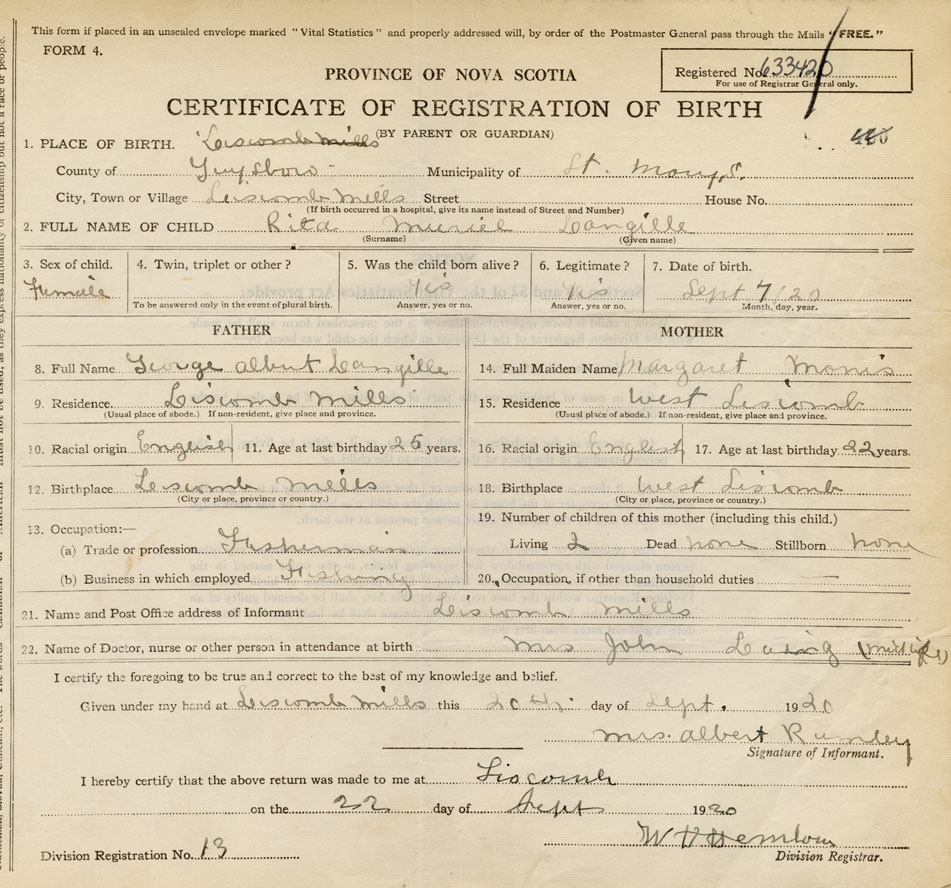 This form if placed in an unsealed envelope marked "Vital Statistics" and properly addressed will, by order of the Postmaster General pass through the Mails "FREE."
FORM 4.
PROVINCE OF NOVA SCOTIA
Registered No. 633420
For use of Registrar General only.
CERTIFICATE OF REGISTRATION OF BIRTH
(BY PARENT OR GUARDIAN)
1. PLACE OF BIRTH. Liscomb Mills
County of Guysboro Municipality of St. Marys.
City, Town or Village Liscomb Mills Street House No.
(If birth occurred in a hospital, give its name instead of Street and Number)
2. FULL NAME OF CHILD Rita Muriel Langille
(Surname) (Given name)
3. Sex of child. 4. Twin, triplet or other? 5. Was the child born alive? 6. Legitimate? 7. Date of birth.
Female Yes Yes Sept 7/20
To be answered only in the event of plural birth. Answer, yes or no. Answer, yes or no. Month, day, year.
FATHER MOTHER
8. Full Name George Albert Langille 14. Full Maiden Name Margaret
9. Residence. Liscomb Mills 15. Residence West Liscomb
(Usual place of abode.) If non-resident, give place and province. (Usual place of abode.) If non-resident, give place and province.
10. Racial origin English 11. Age at last birthday 25 years. 16. Racial origin English 17. Age at last birthday 22 years.
12. Birthplace Liscomb Mills 18. Birthplace West Liscomb
(City or place, province or country.) (City or place, province or country.)
13. Occupation:— 19. Number of children of this mother (including this child.)
(a) Trade or profession Fisherman Living 2 Dead none Stillborn none
(b) Business in which employed Fishing 20. Occupation, if other than household duties —
21. Name and Post Office address of Informant Liscomb Mills
22. Name of Doctor, nurse or other person in attendance at birth Mrs John
I certify the foregoing to be true and correct to the best of my knowledge and belief.
Given under my hand at Liscomb Mills this 20th day of Sept. 1920
Mrs. Albert Rumley
Signature of Informant.
I hereby certify that the above return was made to me at Liscomb
on the 22 day of Sept 1920
W H Hemlow
Division Registration No. 13 Division Registrar.